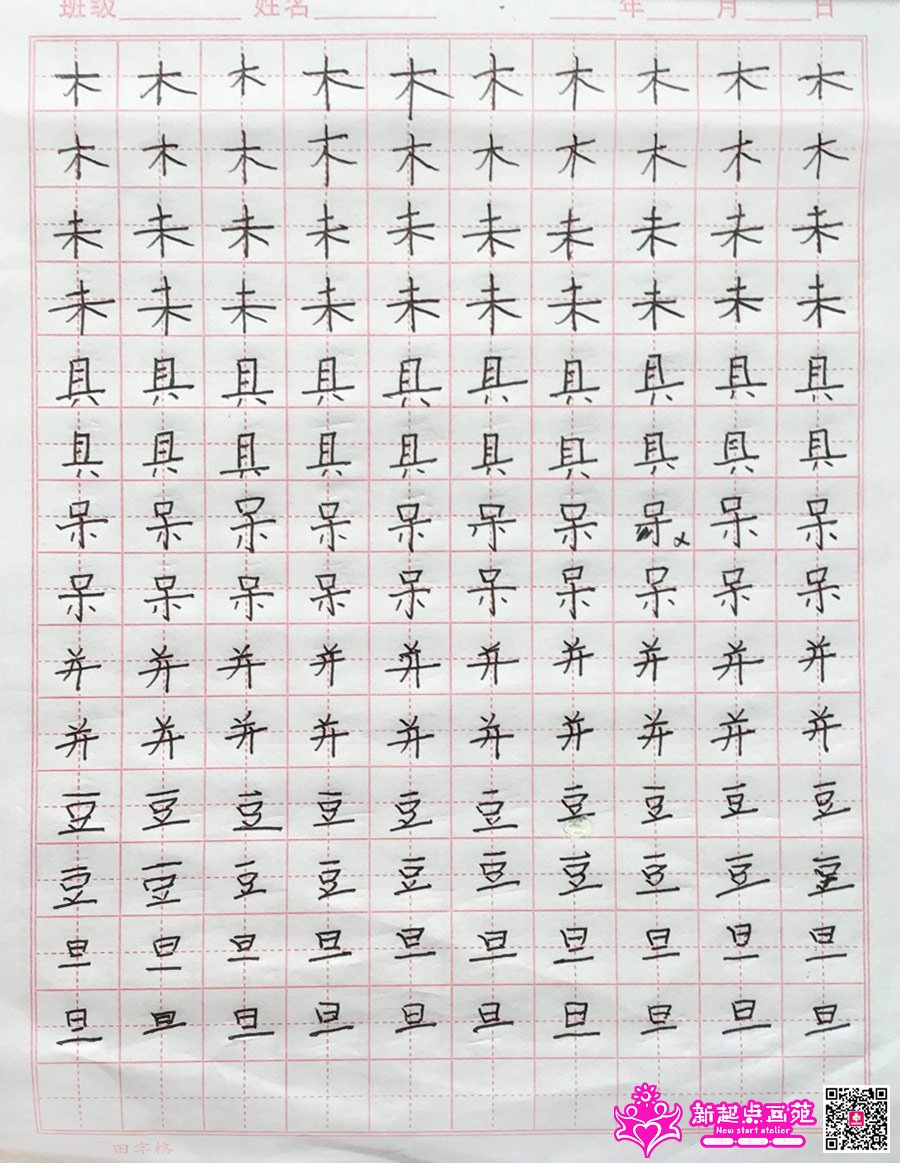 班级 姓名 年 月 日
木 木 木 木 木 木 木 木 木 木
木 木 木 木 木 木 木 木 木 木
未 未 未 未 未 未 未 未 未 未
未 未 未 未 未 未 未 未 未 未
具 具 具 具 具 具 具 具 具 具
具 具 具 具 具 具 具 具 具 具
呆 呆 呆 呆 呆 呆 呆 呆 呆 呆
呆 呆 呆 呆 呆 呆 呆 呆 呆 呆
并 并 并 并 并 并 并 并 并 并
并 并 并 并 并 并 并 并 并 并
豆 豆 豆 豆 豆 豆 豆 豆 豆 豆
豆 豆 豆 豆 豆 豆 豆 豆 豆 豆
旦 旦 旦 旦 旦 旦 旦 旦 旦 旦
旦 旦 旦 旦 旦 旦 旦 旦 旦 旦
新起点画苑
New start atelier
田字格